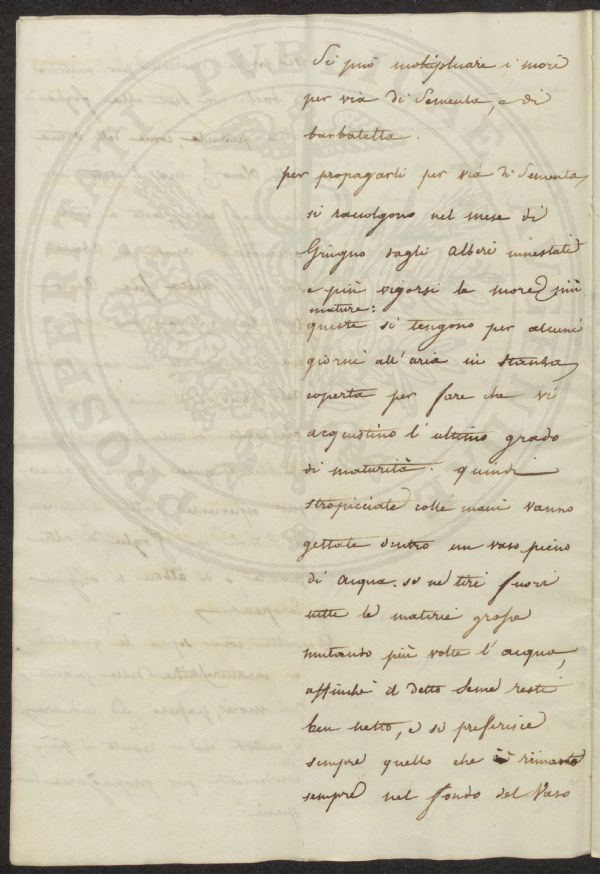 Si può moltiplicare i mori
per via di Sementa, e di
barbatella.
per propagarli per via di Sementa,
si raccolgono nel mese di
Giugno dagli Alberi innestati
e più vigorsi le more più
mature:
queste si tengono per alcuni
giorni all'aria in stanza
coperta per fare che vi
acquistino l'ultimo grado
di maturità. quindi
stropicciate colle mani vanno
gettate dentro un vaso pieno
di acqua. se ne tiri fuori
tutte le materie grosse
mutando più volte l'acqua,
affinchè il detto Seme resti
ben netto, e si preferisce
sempre quello che è rimasto
sempre nel fondo del Vaso